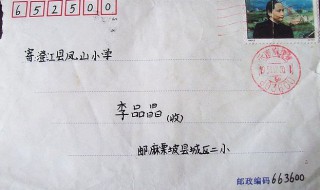 652500
寄:澄江县凤山小学
李品晶(收)
邮麻栗坡县城区二小
邮政编码 663600